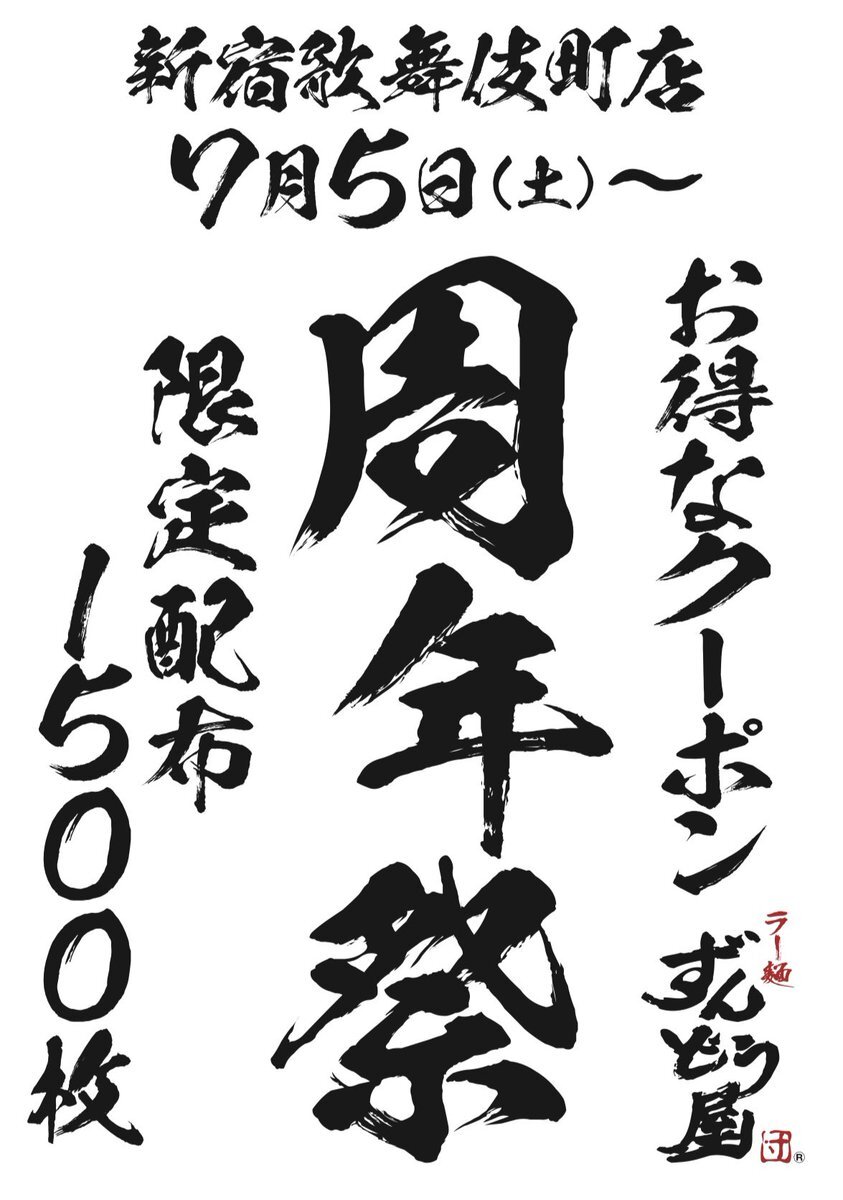 新宿歌舞伎町店
7月5日(土)〜
お得なクーポン
周年祭
限定配布
1500枚
ラー麺
ずんどう屋
団®